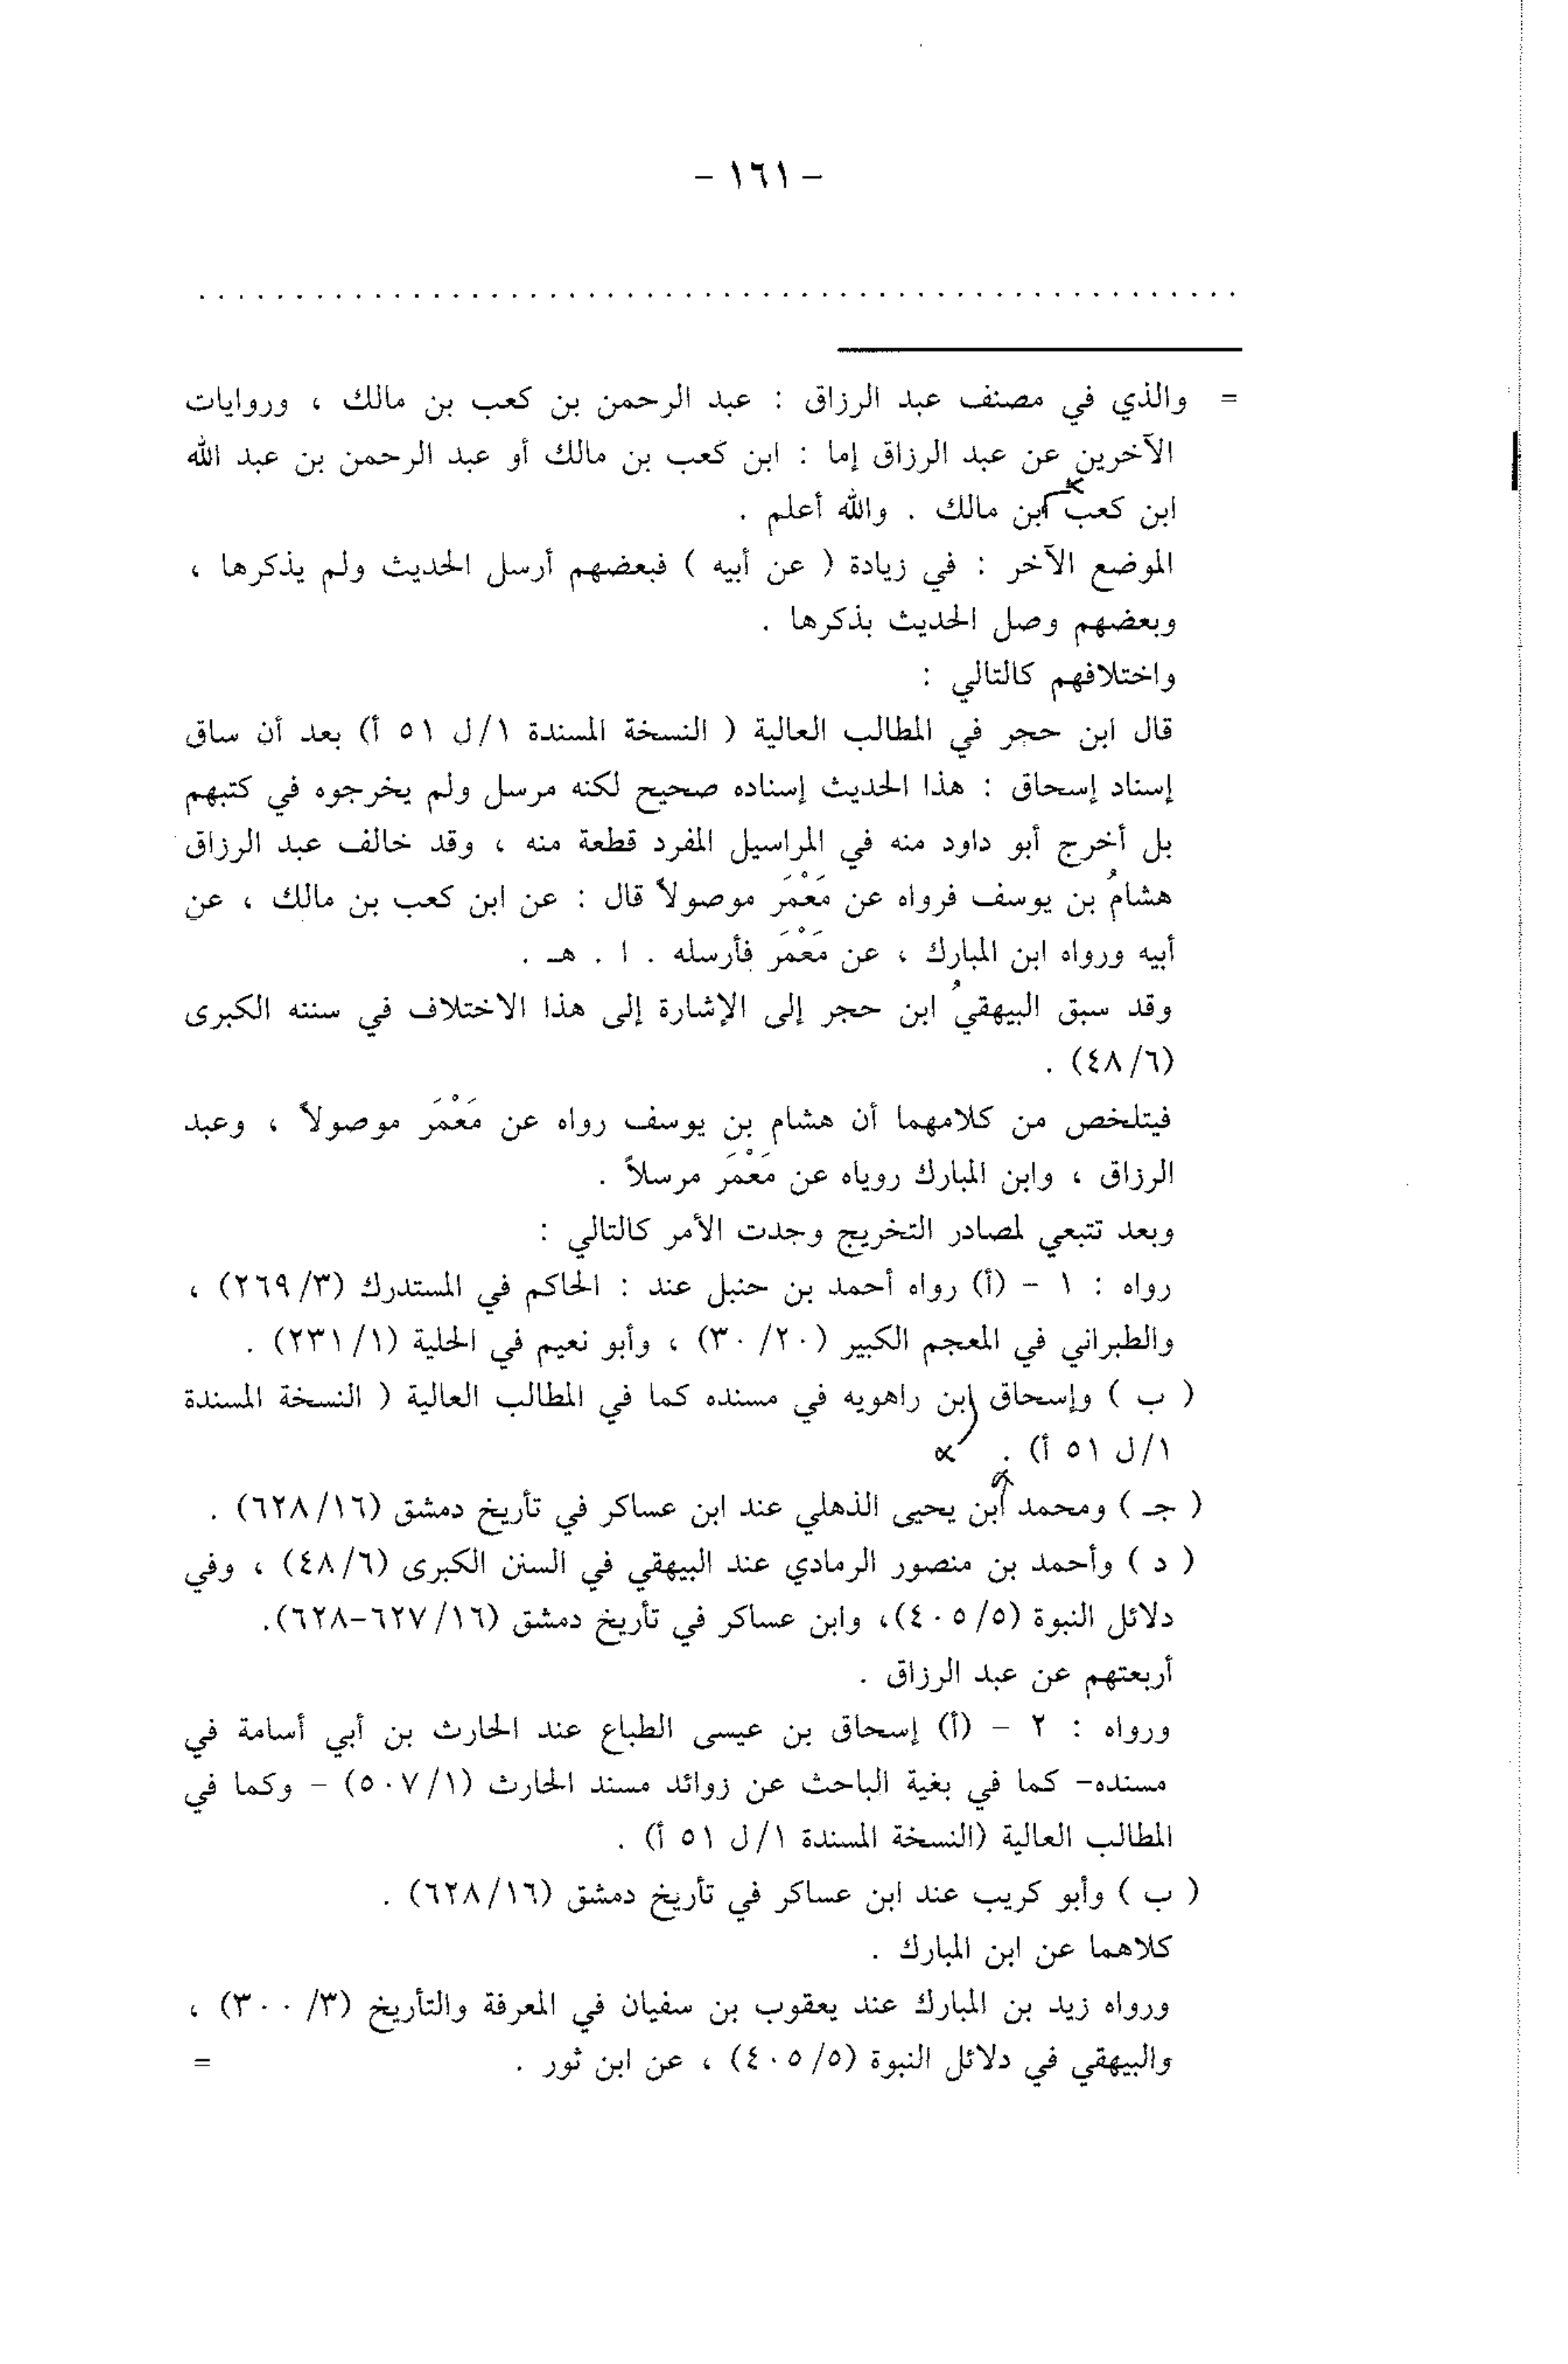 - ١٦١ -
. . . . . . . . . . . . . . . . . . . . . . . . . . . . . . . . . . . . . . . . . . . . . . . . . . . . . .
= والذي في مصنف عبد الرزاق : عبد الرحمن بن كعب بن مالك ، وروايات
الآخرين عن عبد الرزاق إما : ابن كعب بن مالك أو عبد الرحمن بن عبد الله
ابن كعب ابن مالك . والله أعلم .
الموضع الآخر : في زيادة ( عن أبيه ) فبعضهم أرسل الحديث ولم يذكرها ،
وبعضهم وصل الحديث بذكرها .
واختلافهم كالتالي :
قال ابن حجر في المطالب العالية ( النسخة المسندة ١/ل ٥١ أ) بعد أن ساق
إسناد إسحاق : هذا الحديث إسناده صحيح لكنه مرسل ولم يخرجوه في كتبهم
بل أخرج أبو داود منه في المراسيل المفرد قطعة منه ، وقد خالف عبد الرزاق
هشامُ بن يوسف فرواه عن مَعْمَر موصولاً قال : عن ابن كعب بن مالك ، عن
أبيه ورواه ابن المبارك ، عن مَعْمَر فأرسله . ا . هـ .
وقد سبق البيهقيُ ابن حجر إلى الإشارة إلى هذا الاختلاف في سننه الكبرى
(٤٨/٦) .
فيتلخص من كلامهما أن هشام بن يوسف رواه عن مَعْمَر موصولاً ، وعبد
الرزاق ، وابن المبارك روياه عن مَعْمَر مرسلاً .
وبعد تتبعي لمصادر التخريج وجدت الأمر كالتالي :
رواه : ١ - (أ) رواه أحمد بن حنبل عند : الحاكم في المستدرك (٢٦٩/٣) ،
والطبراني في المعجم الكبير (٣٠/٢٠) ، وأبو نعيم في الحلية (٢٣١/١) .
( ب ) وإسحاق ابن راهويه في مسنده كما في المطالب العالية ( النسخة المسندة
١/ل ٥١ أ) .
( جـ ) ومحمد ابن يحيى الذهلي عند ابن عساكر في تأريخ دمشق (٦٢٨/١٦) .
( د ) وأحمد بن منصور الرمادي عند البيهقي في السنن الكبرى (٤٨/٦) ، وفي
دلائل النبوة (٤٠٥/٥)، وابن عساكر في تأريخ دمشق (٦٢٧/١٦-٦٢٨).
أربعتهم عن عبد الرزاق .
ورواه : ٢ - (أ) إسحاق بن عيسى الطباع عند الحارث بن أبي أسامة في
مسنده- كما في بغية الباحث عن زوائد مسند الحارث (٥٠٧/١) - وكما في
المطالب العالية (النسخة المسندة ١/ل ٥١ أ) .
( ب ) وأبو كريب عند ابن عساكر في تأريخ دمشق (٦٢٨/١٦) .
كلاهما عن ابن المبارك .
ورواه زيد بن المبارك عند يعقوب بن سفيان في المعرفة والتأريخ (٣٠٠/٣) ،
والبيهقي في دلائل النبوة (٤٠٥/٥) ، عن ابن ثور . =